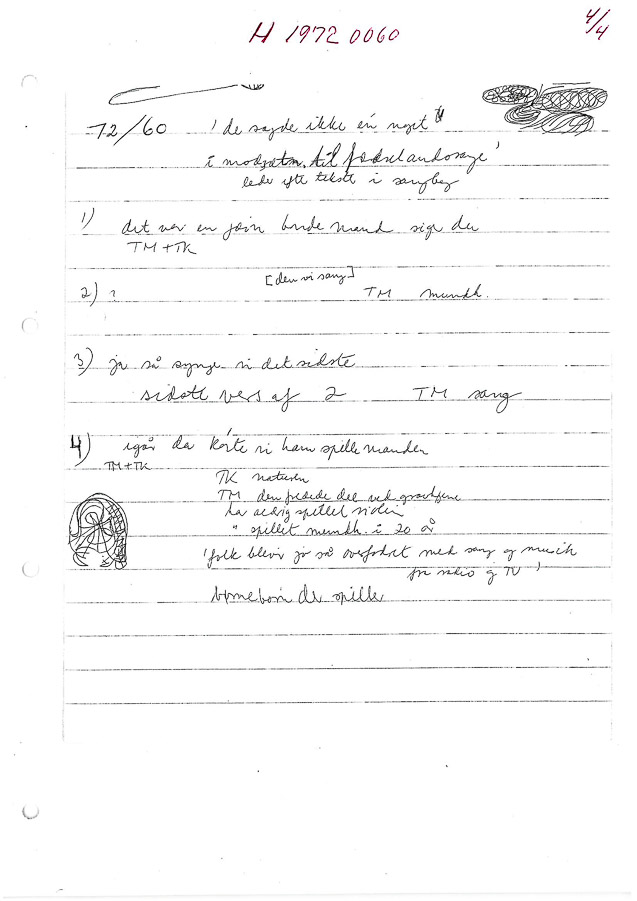 H 1972 0060
4/4
72/60 'de sagde ikke én noget
i modsætn. til fædrelandssange'
lede efte tekste i sangbog
1) det var en bonde mand sige du
TM+TK
[den vi sang]
2) ? TM mundh.
3) ja så synge vi det sidste
sidste vers af 2 TM sang
4) igår da kørte vi ham spillemanden
TM+TK
TK naturen
TM den fredede del ved
har aldrig spillet siden
" spillet mundh. i 20 år
'folk blevir jo så overfodret med sang og musik
fra radio og TV'
børnebørn der spille